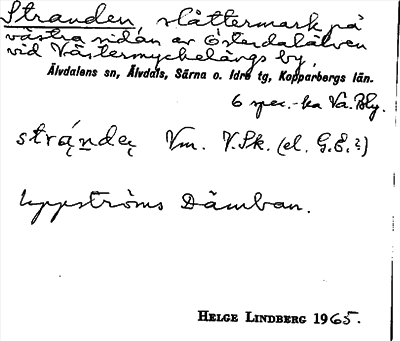 Stranden, slåttermark på
västra sidan av Österdalälven
vid Västermyckelängs by,
Älvdalens sn, Älvdals, Särna o. Idre tg, Kopparbergs län.
6 spec.-ka Va. Bly.
strą́nde̢ Vm. V.Sk. (el. G.E.?)
Uppströms Dämban.
HELGE LINDBERG 1965.